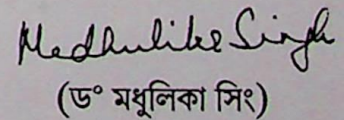 Madhulika Singh
(ড° মধুলিকা সিং)